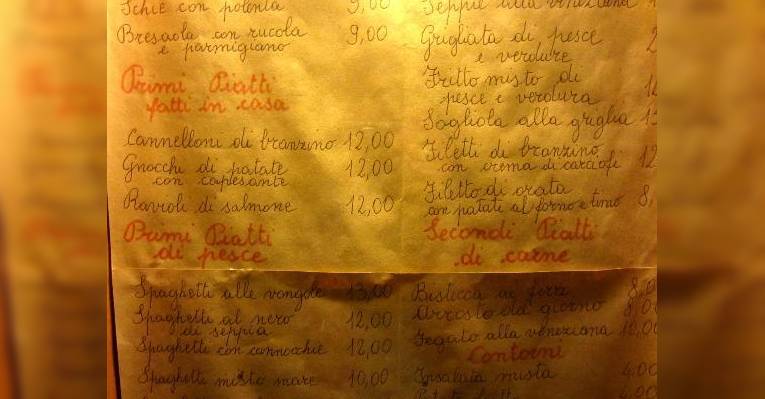 Schie con polenta 9,00
Bresaola con rucola 9,00
e parmigiano
Primi Piatti
fatti in casa
Cannelloni di branzino 12,00
Gnocchi di patate 12,00
con capesante
Ravioli di salmone 12,00
Primi Piatti
di pesce
Spaghetti alle vongole 13,00
Spaghetti al nero 12,00
di seppia
Spaghetti con cannocchie 12,00
Spaghetti misto mare 10,00
Seppie alla veneziana
Grigliata di pesce
e verdure
Fritto misto di
pesce e verdura
Sogliola alla griglia
Filetti di branzino 12
con crema di carciofi
Filetto di orata 8,
con patate al forno e timo
Secondi Piatti
di carne
Bistecca ai ferri 8,0
Arrosto del giorno 8,0
Fegato alla veneziana 10,0
Contorni
Insalata mista 4,00
4,00